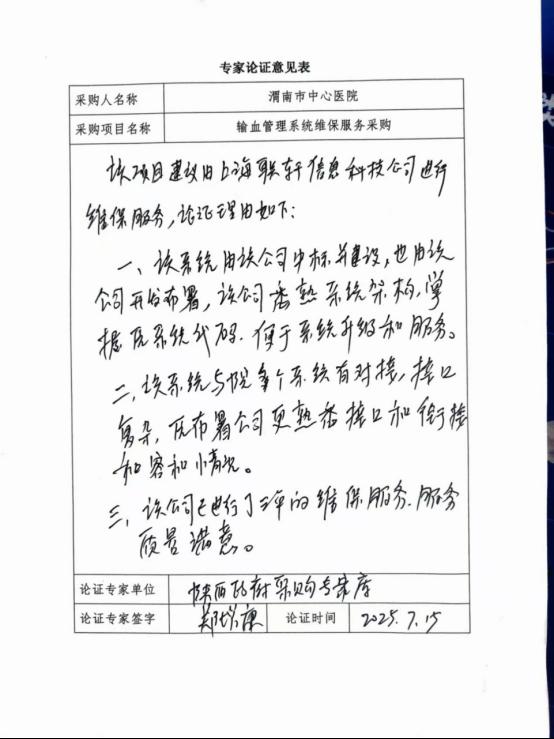 专家论证意见表
采购人名称 渭南市中心医院
采购项目名称 输血管理系统维保服务采购
该项目建议由上海联轩信息科技公司进行
维保服务,论证理由如下:
一、该系统由该公司中标并建设,也由该
公司开发布署,该公司悉熟系统架构,掌
握底系统代码.便于系统升级和服务。
二、该系统与院多个系统有对接,接口
复杂,原布署公司更熟悉接口和衔接
和容和情况。
三、该公司已进行了三年的维保服务.服务
质量满意。
论证专家单位 陕西政府采购专家库
论证专家签字 论证时间 2025.7.15